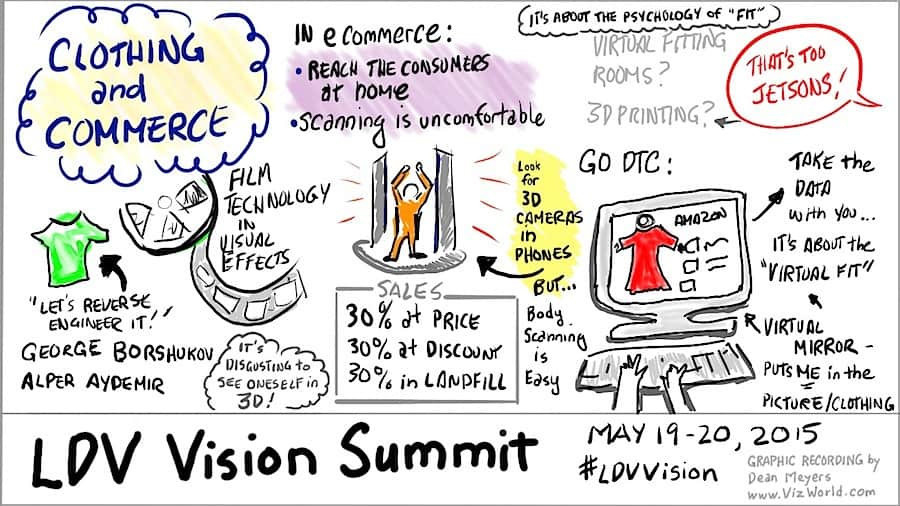 CLOTHING
and
COMMERCE
FILM
TECHNOLOGY
IN
VISUAL
EFFECTS
"LET'S REVERSE
ENGINEER IT!"
GEORGE BORSHUKOV
ALPER AYDEMIR
IT'S
DISGUSTING to
SEE ONESELF in
3D!
IN eCOMMERCE:
• REACH THE CONSUMERS
at home
• SCANNING is uncomfortable
Look
for
3D
CAMERAS
in
PHONES
BUT...
Body
Scanning
is
Easy
SALES
30% at PRICE
30% at DISCOUNT
30% in LANDFILL
IT'S ABOUT THE PSYCHOLOGY of "FIT"
VIRTUAL FITTING
ROOMS?
3D PRINTING?
THAT'S TOO
JETSONS!
GO DTC:
AMAZON
TAKE the
DATA
with you...
IT'S ABOUT the
"VIRTUAL FIT"
VIRTUAL
MIRROR -
PUTS ME in the
PICTURE/CLOTHING
LDV Vision Summit
MAY 19-20, 2015
#LDVVision
GRAPHIC RECORDING by
Dean Meyers
www.VizWorld.com